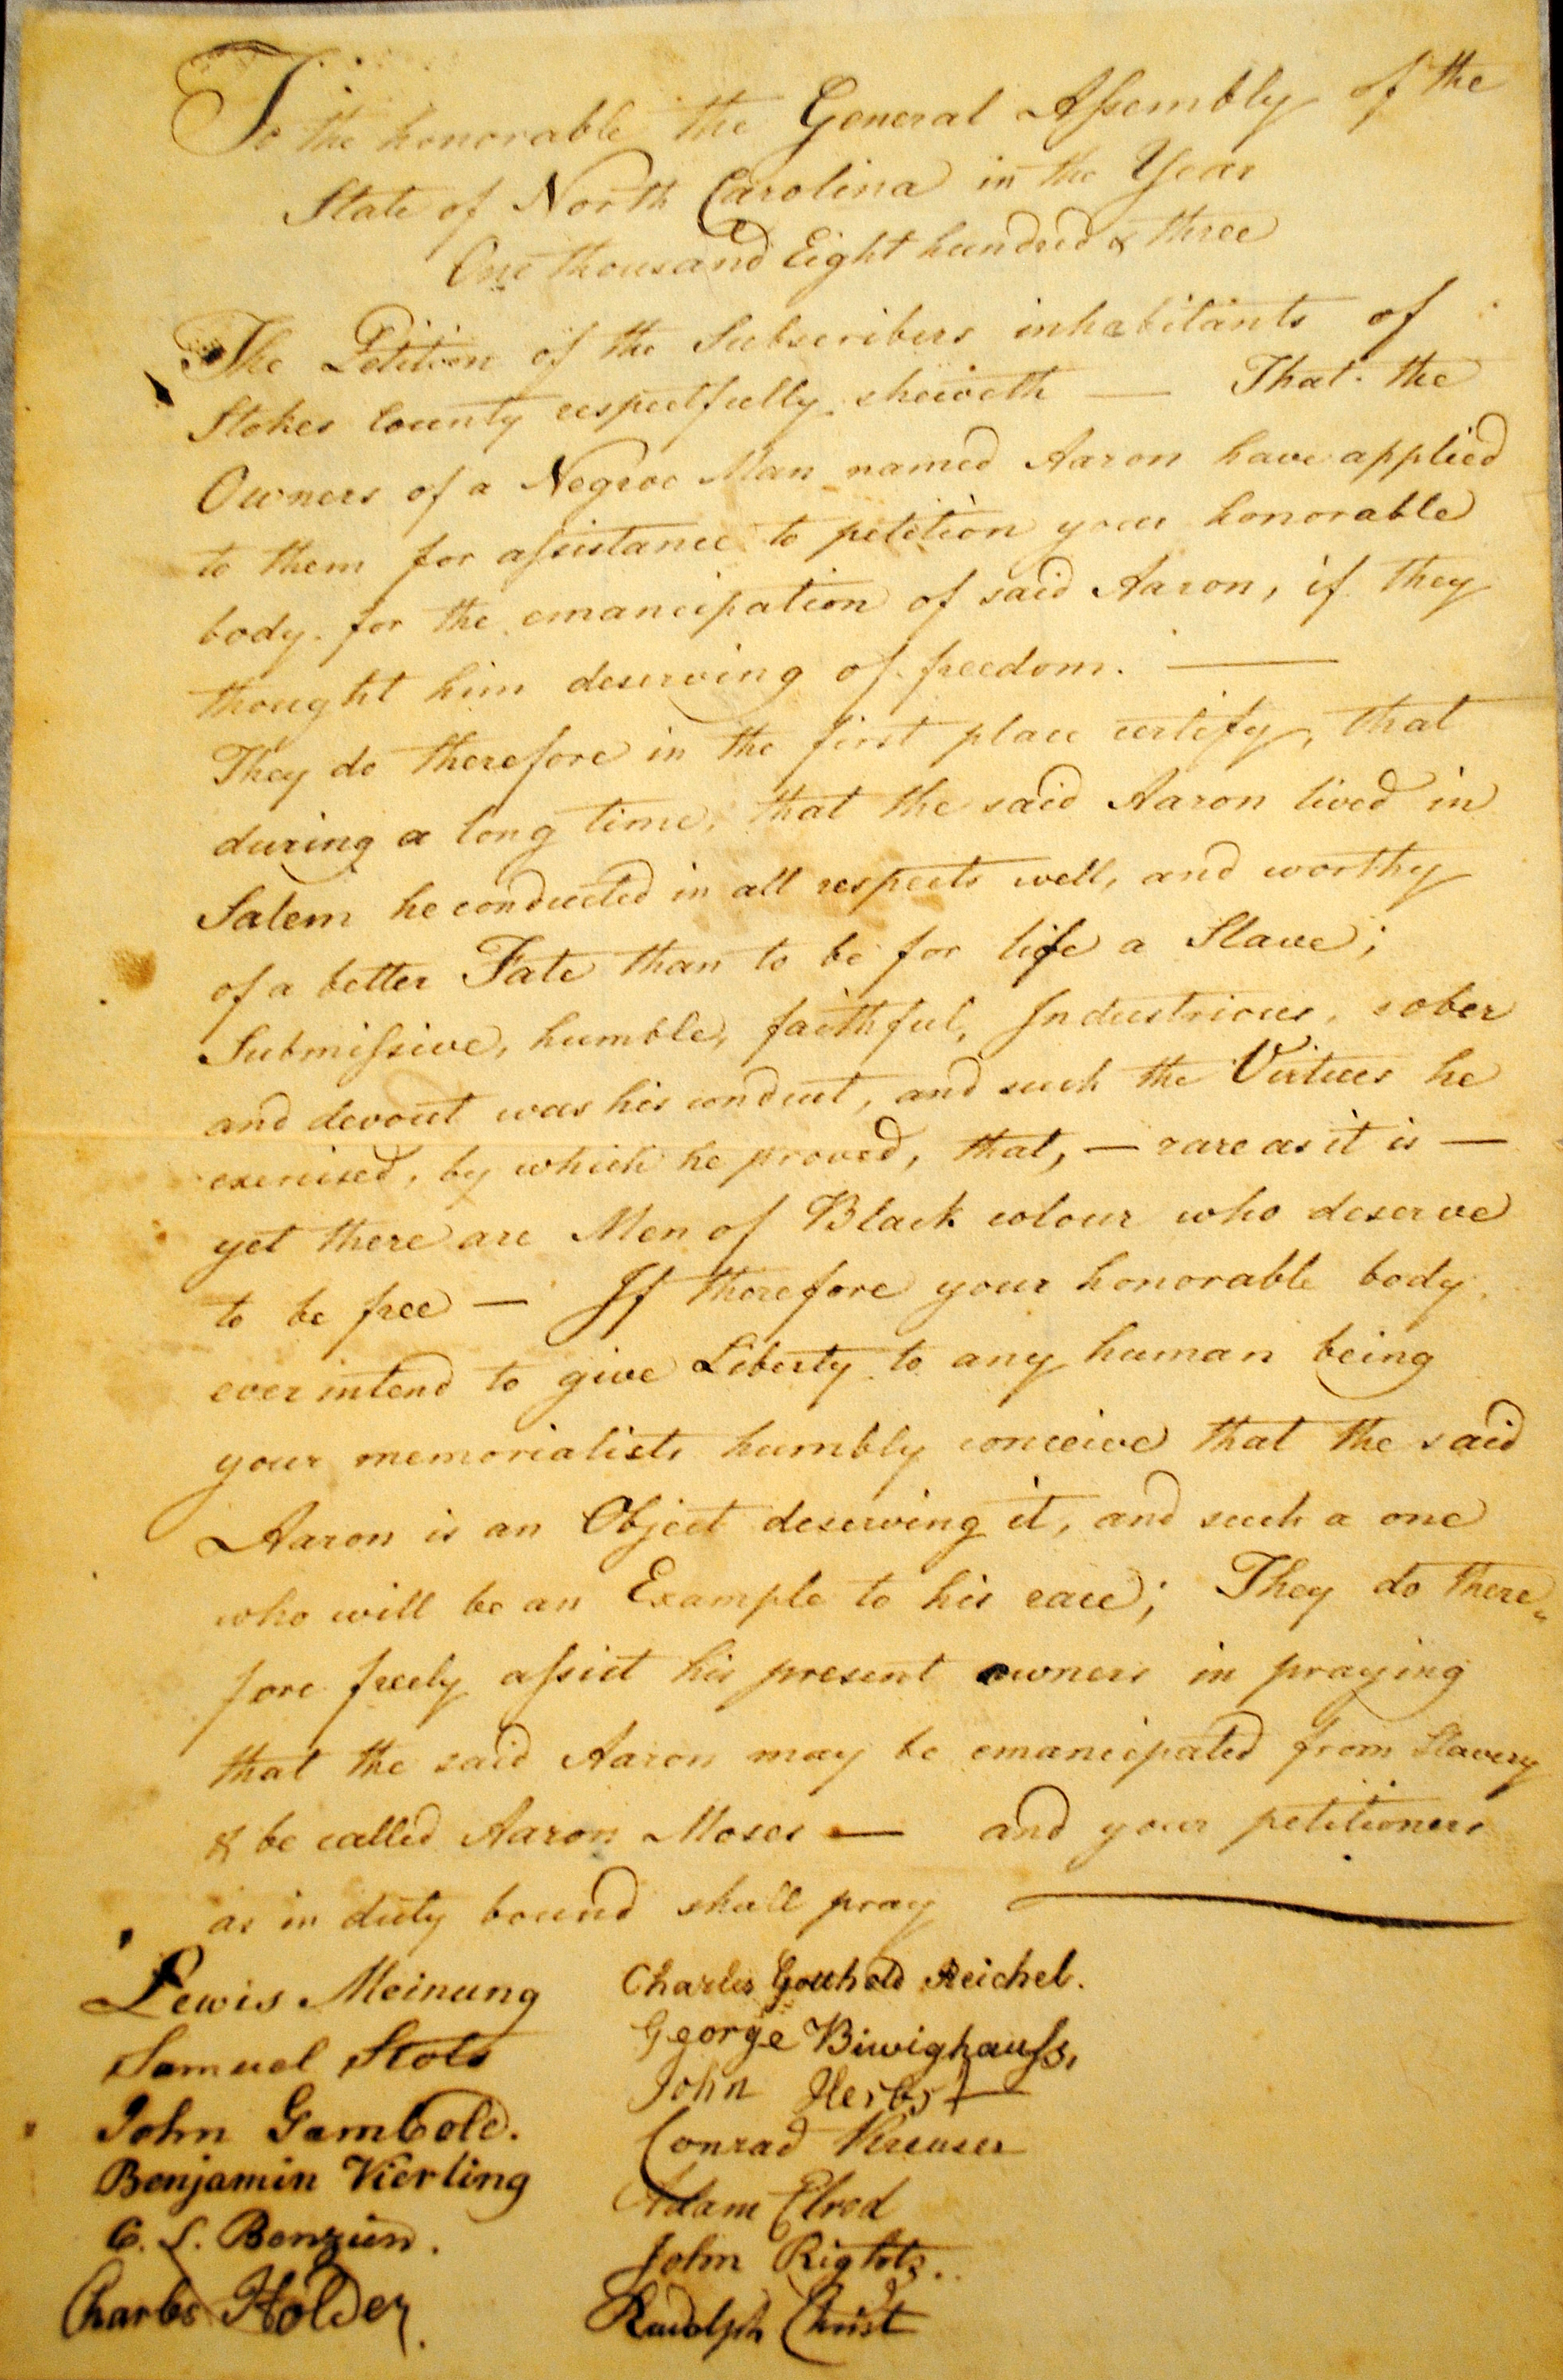 To the honorable the General Assembly of the
State of North Carolina in the Year
One thousand Eight hundred & three
The Petition of the Subscribers inhabitants of
Stokes County respectfully sheweth — That the
Owners of a Negroe Man named Aaron have applied
to them for assistance to petition your honorable
body for the emancipation of said Aaron, if they
thought him deserving of freedom. —
They do therefore in the first place certify, that
during a long time, that the said Aaron lived in
Salem he conducted in all respects well, and worthy
of a better Fate than to be for life a Slave;
Submissive, humble, faithful, Industrious, sober
and devout was his conduct, and such the Virtues he
exercised, by which he proved, that, — rare as it is —
yet there are Men of Black colour who deserve
to be free — If therefore your honorable body
ever intend to give Liberty to any human being
your memorialists humbly conceive that the said
Aaron is an Object deserving it, and such a one
who will be an Example to his race; They do there„
fore freely assist his present owners in praying
that the said Aaron may be emancipated from Slavery
& be called Aaron Moses — and your petitioners
as in duty bound shall pray
Lewis Meinung
Samuel Stotz
John Gambold.
Benjamin Vierling
C. L. Benzien.
Charles Holder.
Charles Gotthold Reichel.
George Biwighauss,
John Herbst
Conrad Kreuser
Adam Elrod
John Rights.
Rudolph Christ